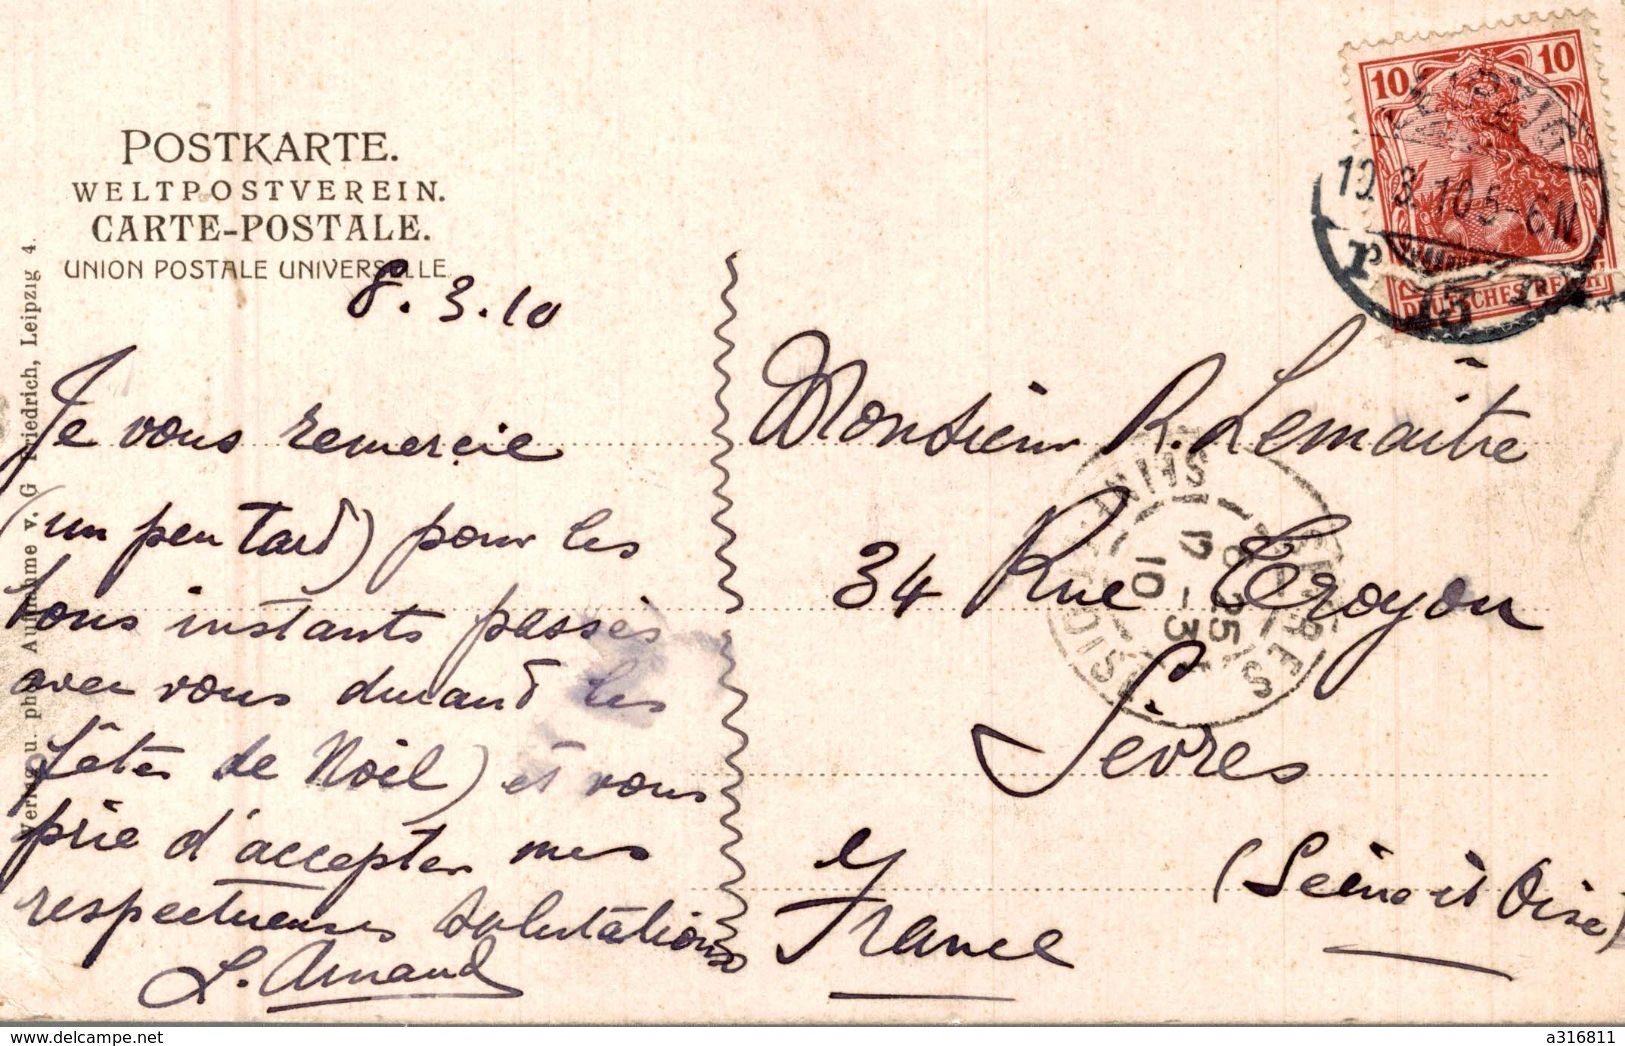 POSTKARTE.
WELTPOSTVEREIN.
CARTE-POSTALE.
UNION POSTALE UNIVERSELLE.
8.3.10
Je vous remercie
(un peu tard) pour les
bons instants passés
avec vous durand les
fêtes de Noël) et vous
prie d'accepter mes
respectueuses salutations
L. Arnaud
Verlag u. phot. Aufnahme v. G Friedrich, Leipzig 4.
10 10
DEUTSCHES REICH
LEIPZIG
10.3.10 5-6N
13
Monsieur R. Lemaître
34 Rue Troyon
Sèvres
(Seine et Oise)
France
SEVRES
SEINE ET OISE
8 25
12 - 3
10
delcampe.net
a316811